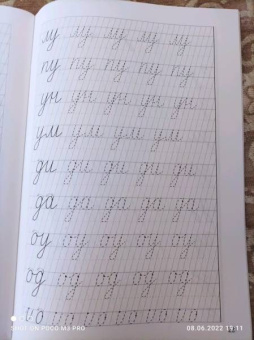 лу лу лу лу лу
пу пу пу пу пу
ун ун ун ун ун
ум ум ум ум
ди ди ди ди ди
да да да да да
оу оу оу оу оу
од од од од од
SHOT ON POCO M3 PRO
08.06.2022 11:11